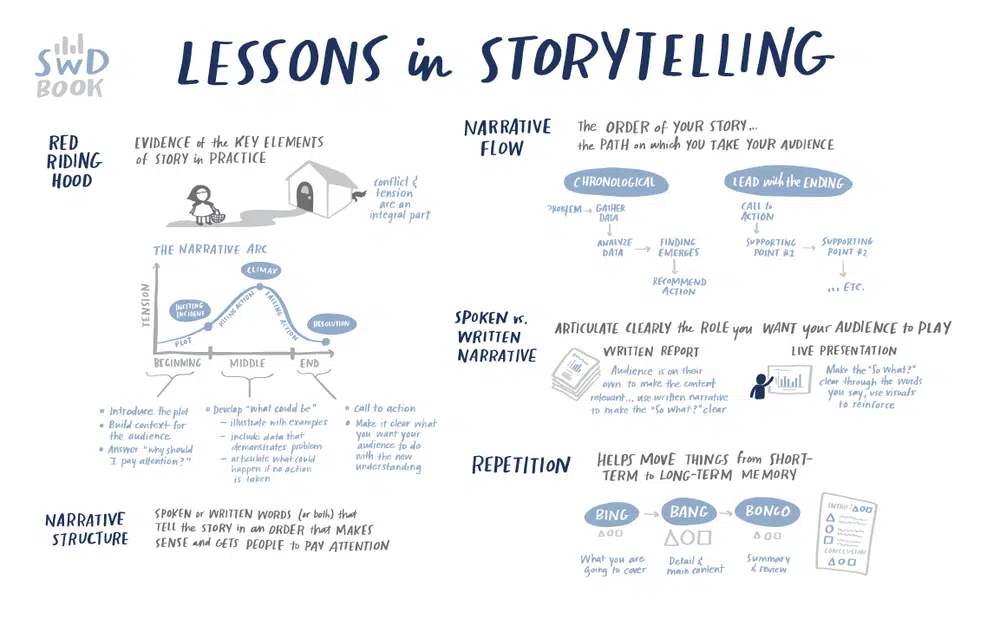 SWD
BOOK
LESSONS in STORYTELLING
RED
RIDING
HOOD
EVIDENCE of the KEY ELEMENTS
of STORY in PRACTICE
conflict &
tension
are an
integral part
THE NARRATIVE ARC
TENSION
PLOT
INCITING
INCIDENT
RISING ACTION
CLIMAX
FALLING ACTION
RESOLUTION
BEGINNING
MIDDLE
END
• Introduce the plot
• Build context for
the audience
• Answer "why should
I pay attention?"
• Develop "what could be"
– illustrate with examples
– include data that
demonstrates problem
– articulate what could
happen if no action
is taken
• Call to action
• Make it clear what
you want your
audience to do
with the new
understanding
NARRATIVE
STRUCTURE
SPOKEN or WRITTEN WORDS (or both) that
TELL the STORY in an ORDER that MAKES
SENSE and GETS PEOPLE to PAY ATTENTION
NARRATIVE
FLOW
The ORDER of YOUR STORY...
the PATH on which YOU TAKE YOUR AUDIENCE
CHRONOLOGICAL
PROBLEM → GATHER
DATA
ANALYZE
DATA
→ FINDING
EMERGES
RECOMMEND
ACTION
LEAD with the ENDING
CALL to
ACTION
SUPPORTING
POINT #1
→ SUPPORTING
POINT #2
... ETC.
SPOKEN vs.
WRITTEN
NARRATIVE
ARTICULATE CLEARLY the ROLE you WANT your AUDIENCE to PLAY
WRITTEN REPORT
Audience is on their
own to make the content
relevant... use written narrative
to make the "So What?" clear
LIVE PRESENTATION
Make the "So What?"
clear through the words
you say, use visuals
to reinforce
REPETITION
HELPS MOVE THINGS from SHORT-
TERM to LONG-TERM MEMORY
BING → BANG → BONGO
What you are
going to cover
Detail &
main content
Summary
& review
INTRO:
CONCLUSION